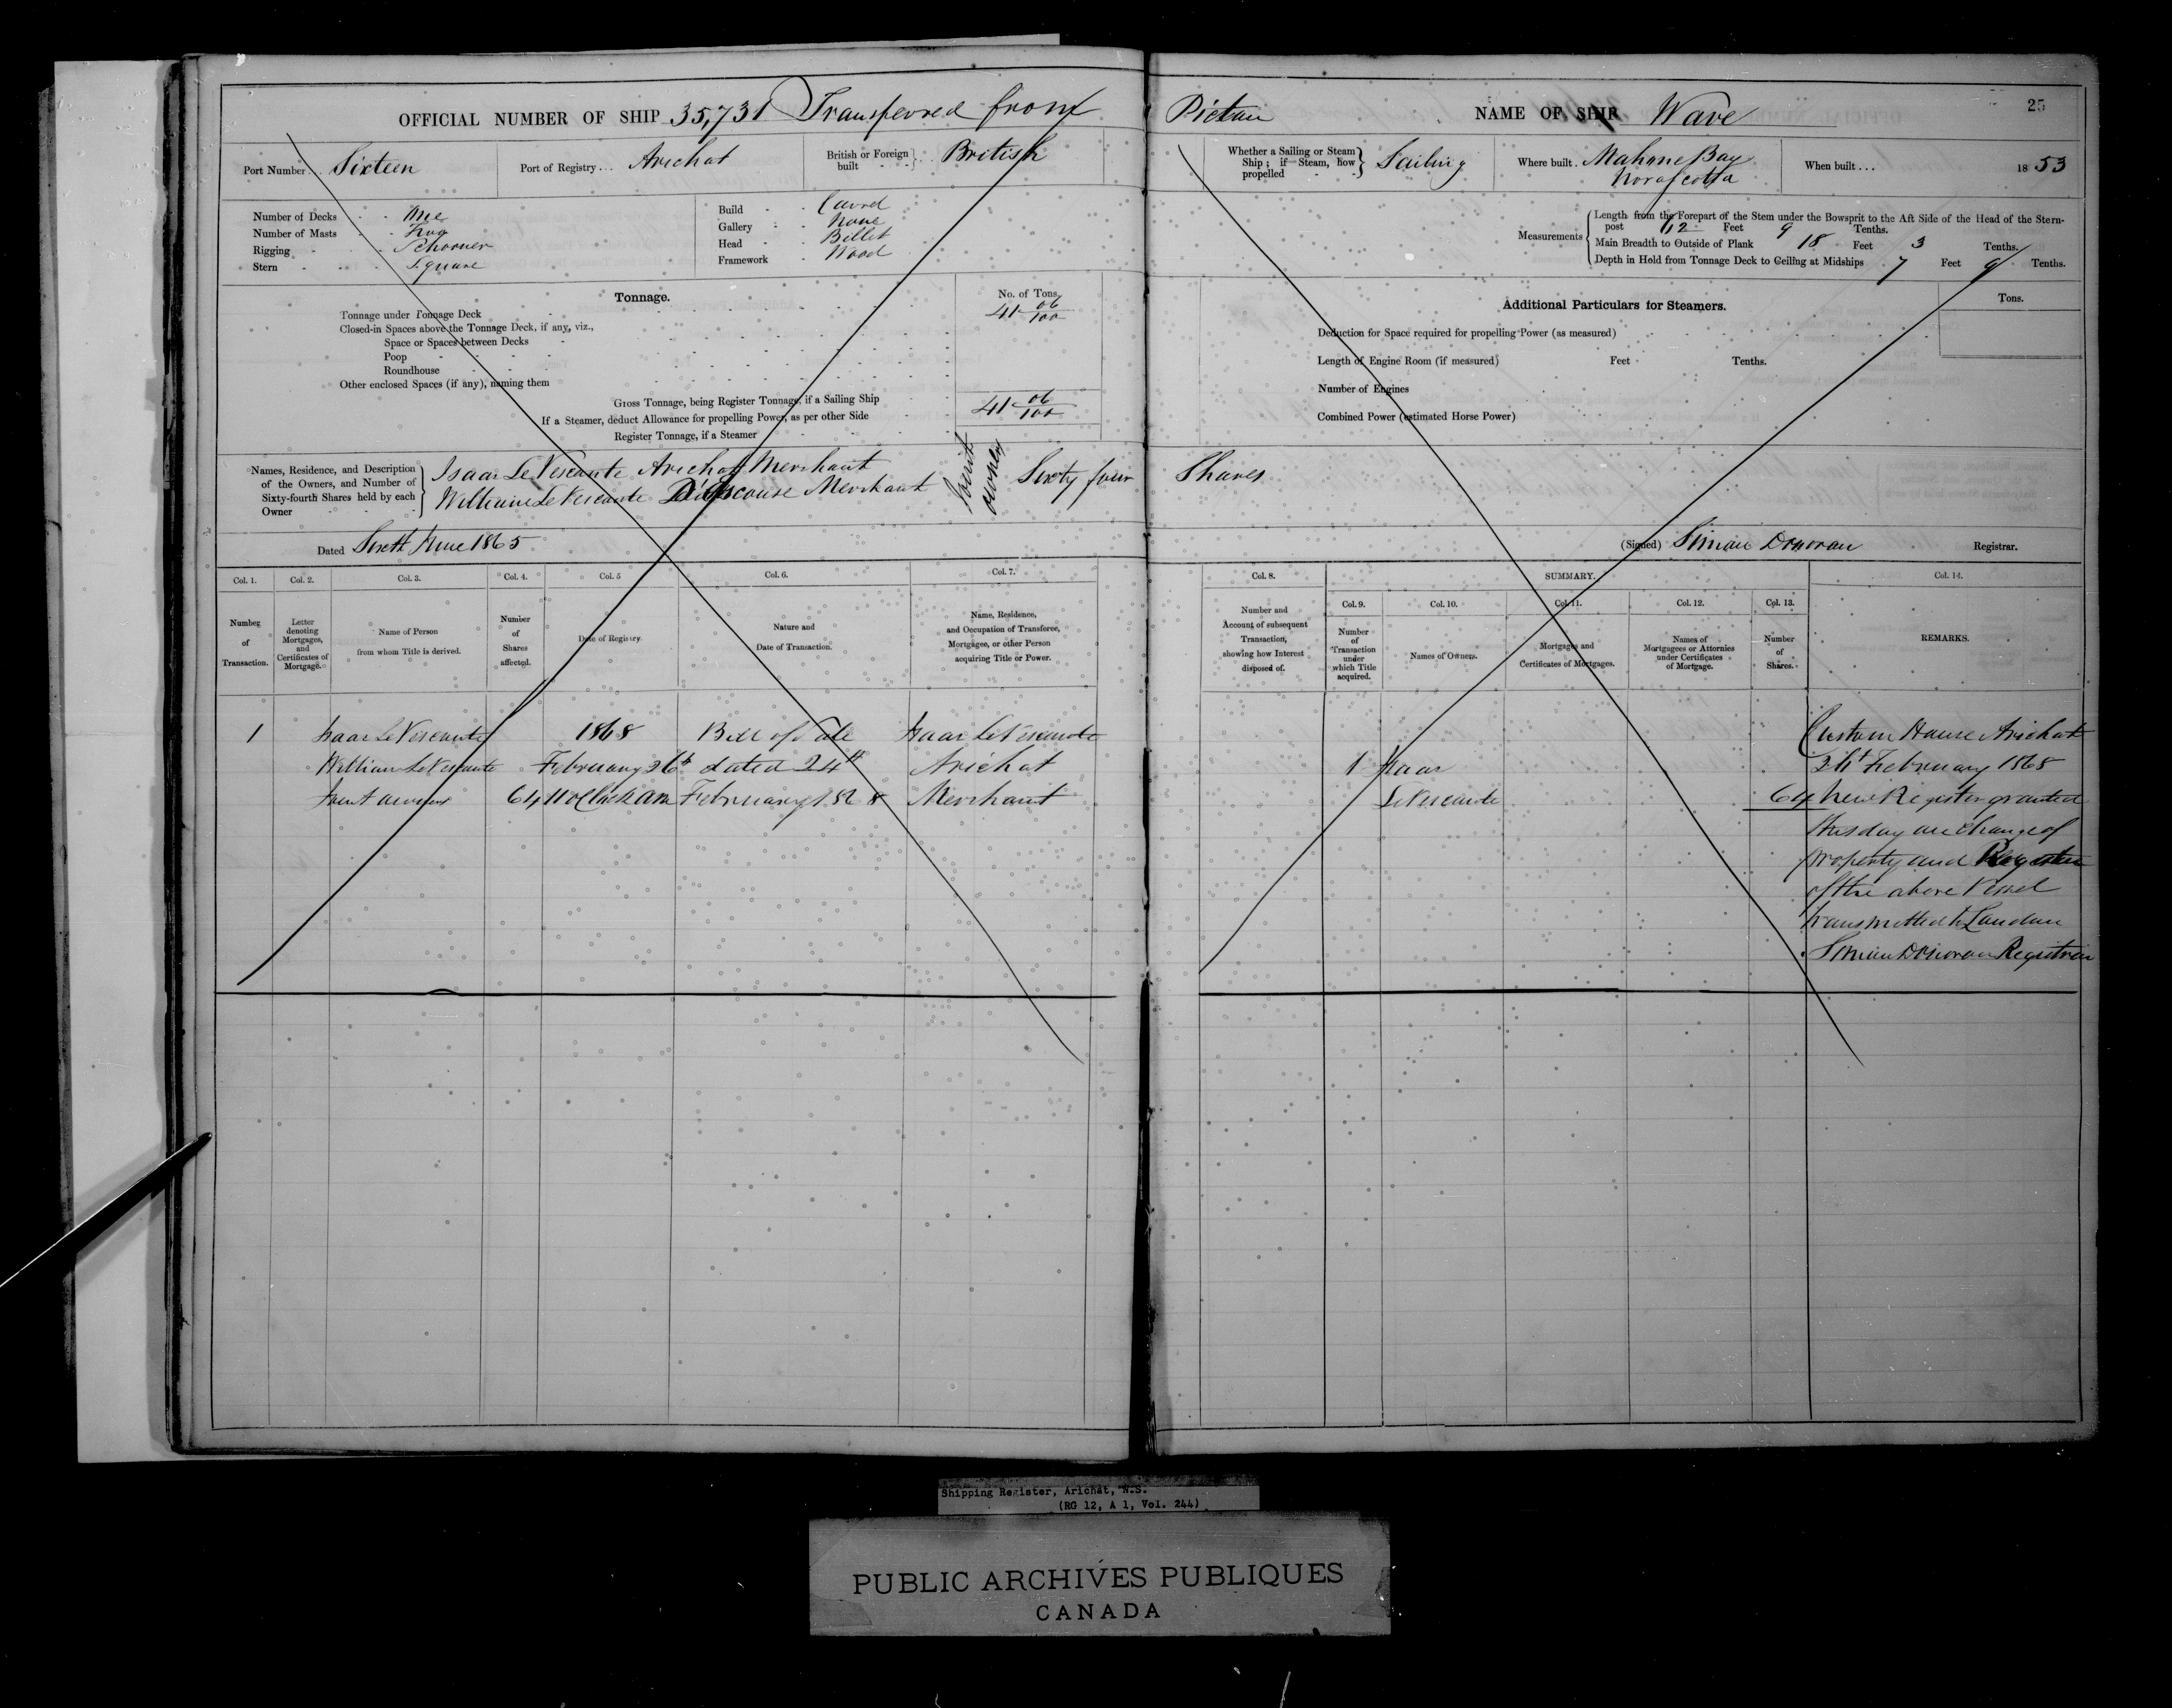 OFFICIAL NUMBER OF SHIP 35,731 Transferred from Pictou
NAME OF SHIP Wave
25
Port Number . . Sixteen
Port of Registry . . . Arichat
British or Foreign built British
Whether a Sailing or Steam Ship; if Steam, how propelled Sailing
Where built . Mahone Bay
Nova Scotia
When built . . . 1853
Number of Decks One
Number of Masts Two
Rigging Schooner
Stern Square
Build Carvel
Gallery None
Head Billet
Framework Wood
Measurements
Length from the Forepart of the Stem under the Bowsprit to the Aft Side of the Head of the Stern-
post Feet 9 Tenths.
Main Breadth to Outside of Plank 18 Feet 3 Tenths.
Depth in Hold from Tonnage Deck to Ceiling at Midships 7 Feet 9 Tenths.
Tonnage.
No. of Tons.
Tonnage under Tonnage Deck 41 06/100
Closed-in Spaces above the Tonnage Deck, if any, viz.,
Space or Spaces between Decks
Poop
Roundhouse
Other enclosed Spaces (if any), naming them
Gross Tonnage, being Register Tonnage, if a Sailing Ship 41 06/100
If a Steamer, deduct Allowance for propelling Power, as per other Side
Register Tonnage, if a Steamer
Additional Particulars for Steamers.
Tons.
Deduction for Space required for propelling Power (as measured)
Length of Engine Room (if measured) Feet Tenths.
Number of Engines
Combined Power (estimated Horse Power)
Names, Residence, and Description
of the Owners, and Number of
Sixty-fourth Shares held by each
Owner
Isaac LeVesconte Arichat Merchant
William LeVesconte D'Escouse Merchant
Joint
owners
Sixty four Shares
Dated June 1865
(Signed) Simon Donovan Registrar.
Col. 1.
Number
of
Transaction.
Col. 2.
Letter
denoting
Mortgages,
and
Certificates of
Mortgage.
Col. 3.
Name of Person
from whom Title is derived.
Col. 4.
Number
of
Shares
affected.
Col. 5
Date of Registry.
Col. 6.
Nature and
Date of Transaction.
Col. 7.
Name, Residence,
and Occupation of Transferee,
Mortgagee, or other Person
acquiring Title or Power.
Col. 8.
Number and
Account of subsequent
Transaction,
showing how Interest
disposed of.
SUMMARY.
Col. 9.
Number
of
Transaction
under
which Title
acquired.
Col. 10.
Names of Owners.
Col. 11.
Mortgages and
Certificates of Mortgages.
Col. 12.
Names of
Mortgagees or Attornies
under Certificates
of Mortgage.
Col. 13.
Number
of
Shares.
Col. 14.
REMARKS.
1 Isaac LeVesconte 1868 Bill of Sale Isaac LeVesconte
William LeVesconte February 26th dated 24th Arichat
Joint owners 64 11 oClock am February 1868 Merchant
1 Isaac
LeVesconte 64
Custom House Arichat
February 1868
New Register granted
this day on change of
property and Register
of the above Vessel
transmitted to London
Simon Donovan Registrar
Shipping Register, Arichat, N.S.
(RG 12, A 1, Vol. 244)
PUBLIC ARCHIVES PUBLIQUES
CANADA